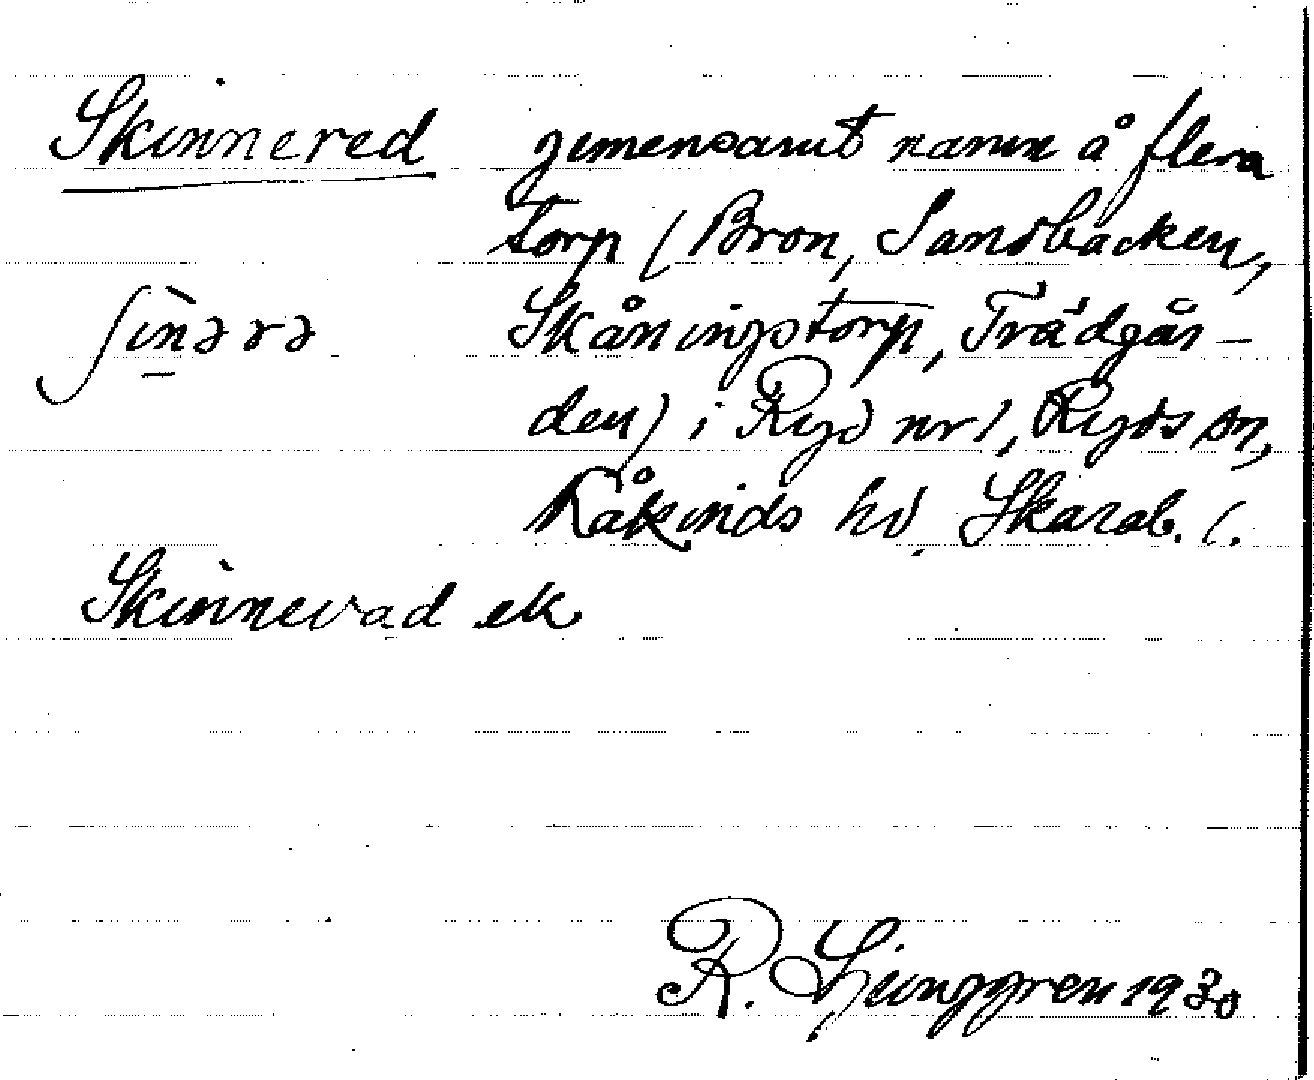 Skinnered gemensamt namn å flera
torp (Bron, Sandbacken,
ʃìnərə Skåningstorp, Trädgår-
den) i Ryd nr 1, Ryds sn,
Kåkinds hd, Skarab. l.
Skinnerad ek
R. Ljunggren 1930